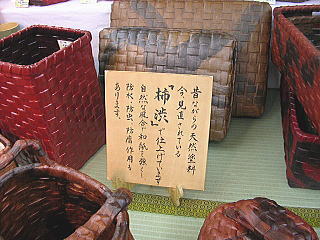 昔ながらの天然塗料
今、見直されている
「柿渋」で仕上げています
自然な風合で和紙を強くし
防水、防虫、防腐作用も
あります。